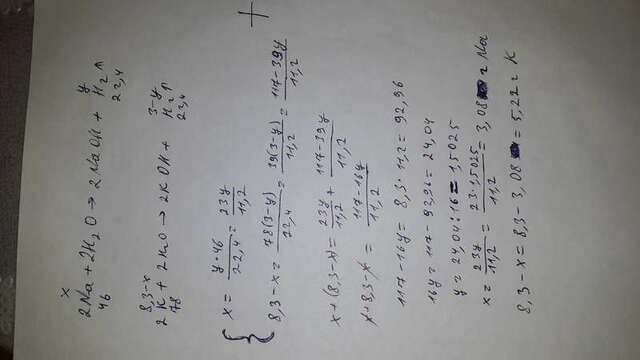 x y
2Na + 2H₂O → 2NaOH + H₂↑
46 22,4
8,3-x 3-y
2K + 2H₂O → 2KOH + H₂↑
78 22,4
x = y·46/22,4 = 23y/11,2
8,3-x = 78(3-y)/22,4 = 39(3-y)/11,2 = 117-39y/11,2
x+(8,3-x) = 23y/11,2 + 117-39y/11,2
x+8,3-x = 117-16y/11,2
117-16y = 8,3·11,2 = 92,96
16y = 117-92,96 = 24,04
y = 24,04:16 = 1,5025
x = 23y/11,2 = 23·1,5025/11,2 = 3,08 г Na
8,3-x = 8,3-3,08 = 5,22 г K